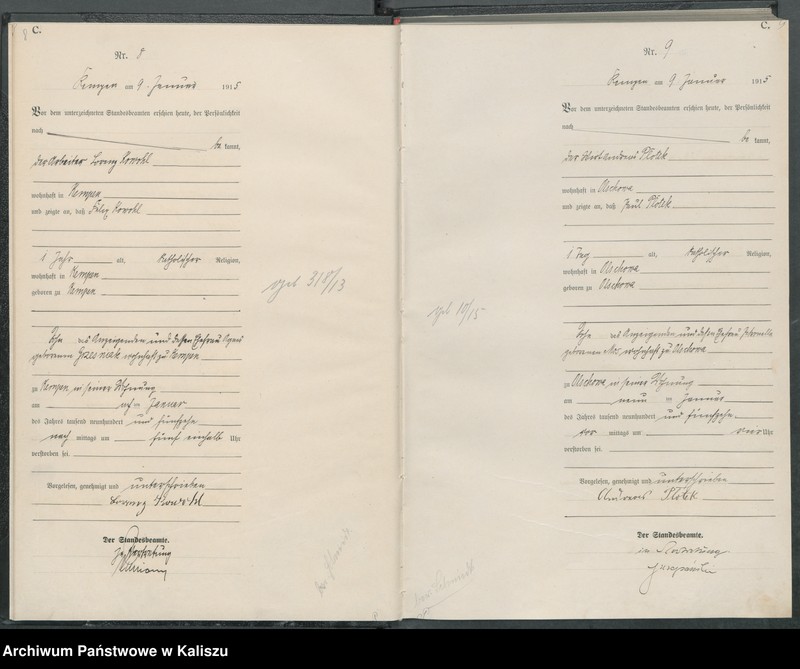 C.
8
Nr. 8
Kempen am 9. Januar 1915
Vor dem unterzeichneten Standesbeamten erschien heute, der Persönlichkeit
nach
be kannt,
der Arbeiter Lorenz Kowohl
wohnhaft in Kempen
und zeigte an, daß Felix Kowohl
1 Jahr alt, katholischer Religion,
wohnhaft in Kempen
geboren zu Kempen
Sohn des Anzeigenden und dessen Ehefrau Agnes
geborenen Grzesniak wohnhaft zu Kempen
zu Kempen, in seiner Wohnung
am Januar
des Jahres tausend neunhundert und fünfzehn
nach mittags um fünf einhalb Uhr
verstorben sei.
Vorgelesen, genehmigt und unterschrieben
Lorenz Kowohl
Der Standesbeamte.
In Vertretung
Geb 318/13
C.
Nr. 9
Kempen am 9. Januar 1915
Vor dem unterzeichneten Standesbeamten erschien heute, der Persönlichkeit
nach
be kannt,
der Andreas Plotek
wohnhaft in Olschowa
und zeigte an, daß Paul Plotek
1 Tag alt, katholischer Religion,
wohnhaft in Olschowa
geboren zu Olschowa
Sohn des Anzeigenden und dessen Ehefrau Petronella
geborenen wohnhaft zu Olschowa
zu Olschowa, in seiner Wohnung
am neun ten Januar
des Jahres tausend neunhundert und fünfzehn
vor mittags um vier Uhr
verstorben sei.
Vorgelesen, genehmigt und unterschrieben
Andreas Plotek
Der Standesbeamte.
in Vertretung
Geb 10/15
Archiwum Państwowe w Kaliszu